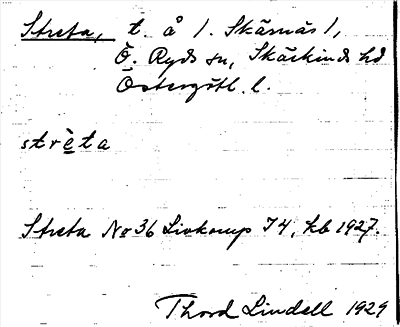 Streta, t. å /. Skärnäs /,
Ö. Ryds sn, Skärkinds hd
Östergötl. l.
strèta
Streta No 36 Livkomp I 4, kb 1927.
Thord Lindell 1929